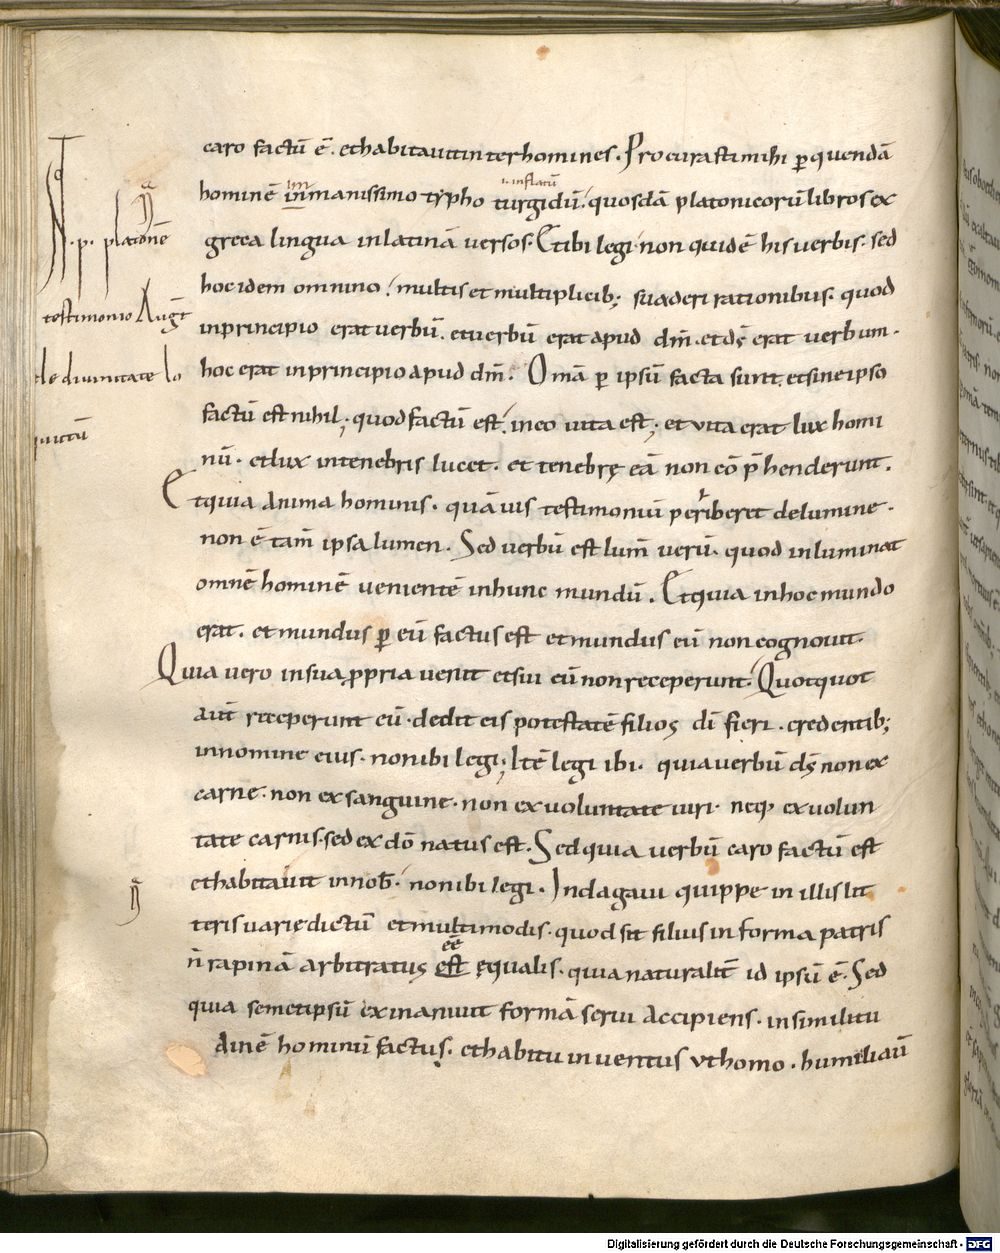 caro factū ē. et habitauit inter homines. Procurasti mihi ꝑ quendā
hominē inmanissimo typho turgidū. quosdā platonicorū libros ex
im
.i. inflatū
greca lingua in latinā versos. Et ibi legi non quidē his verbis. sed
hoc idem omnino. multis et multiplicib; suaderi rationibus. quod
in principio erat verbū. et verbū erat apud dm̄. et ds̄ erat verbum.
hoc erat in principio apud dm̄. Om̄a ꝑ ipsū facta sunt. et sine ipso
factū est nihil; quod factū est. in eo vita est; et vita erat lux homi
nū. et lux in tenebris lucet. et tenebrę eā non cō p̄henderunt.
Et quia anima hominis. quāuis testimoniū periberet de lumine.
non ē tam̄ ipsa lumen. Sed verbū est lum̄ verū. quod inluminat
omnē hominē venientē in hunc mundū. Et quia in hoc mundo
erat. et mundus ꝑ eū factus est et mundus eū non cognouit.
Quia vero in sua ꝓpria venit et sui eū non receperunt. Quotquot
aut̄ receperunt eū. dedit eis potestatē filios di fieri. credentib;
in nomine eius. non ibi legi; Itē legi ibi. quia verbū ds̄ non ex
carne. non ex sanguine. non ex voluntate uiri. neq; ex volun
tate carnis. sed ex dō natus est. Sed quia verbū caro factū est
et habitauit in nob̄. non ibi legi. Indagaui quippe in illis lit
teris varie dictū et multimodis. quod sit filius in forma patris
n̄ rapinā arbitratus est ęqualis. quia naturalit̄ id ipsū ē. Sed
ēē
quia semetipsū exinaniuit formā serui accipiens. in similitu
dinē hominū factus. et habitu inuentus vt homo. humiliauī
.p. platonē
testimonio Augt̄
de diuinitate lo
quitū